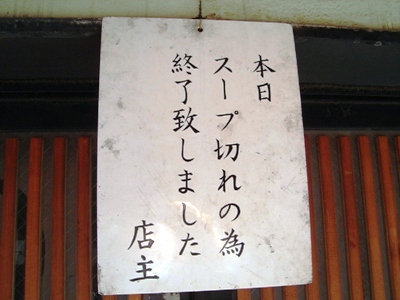 本日
スープ切れの為
終了致しました
店主